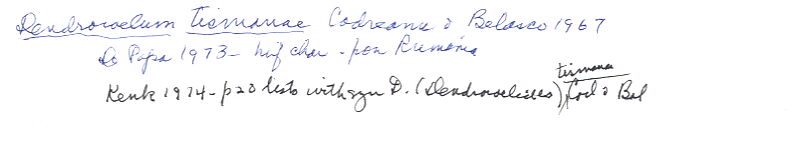 Dendrocoelum tismanae Codreanu & Balcesco 1967
De Papa 1973 - hyf char - from Rumania
Kenk 1974 - p20 lists with syn D. (Dendrocoelides) tismanae Cod & Bal